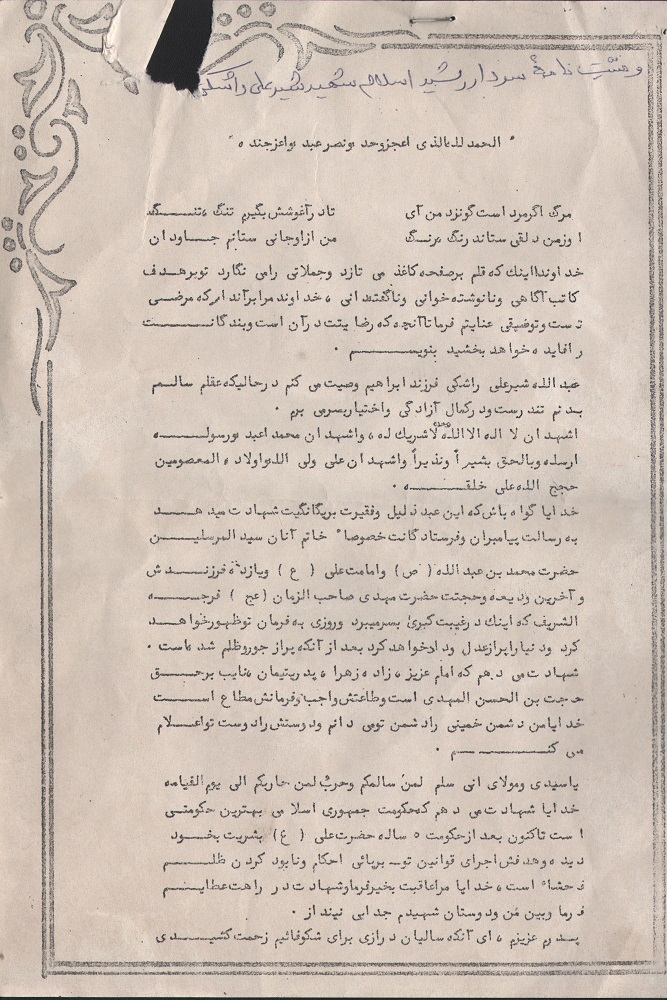 وصیت نامهٔ سردار رشید اسلام شهید شیرعلی راشکی
" الحمدلله الذی اعجزوحد ونصر عبد واعزجنده "
مرگ اگرمرد است گونزد من آی تاد رآغوشش بگیرم تنگ ،تنگ
اوزمن دلقی ستاند رنگ ،رنگ من ازاوجانی ستانم جاودان
خداوندااینك که قلم برصفحه کاغذ می تازد وجملاتی رامی نگارد توبرهدف
کاتب آگاهی ونانوشته خوانی وناگفته دانی ، خداوند مرابرآندارکه مرضی
تست وتوضیقی عنایتم فرماتاآنچه که رضایتت درآن است وبندگانت
رافایده خواهد بخشید بنویسم .
عبدالله شیرعلی راشکی فرزند ابراهیم وصیت می کنم درحالیکه عقلم سالم
بدنم تندرست ودرکمال آزادگی واختیاربسرمی برم .
اشهدان لا اله الا الله وحده لاشریك له ، واشهدان محمداعبده ورسوله
ارسله وبالحق بشیراً ونذیراً واشهدان علی ولی الله واولاده المعصومین
حجج الله علی خلقه .
خدایا گواه باش که این عبد ذلیل وفقیرت بریگانگیت شهادت میدهد
به رسالت پیامبران وفرستادگانت خصوصا" خاتم آنان سیدالمرسلین
حضرت محمدبن عبدالله (ص) وامامت علی (ع) ویازده فرزندش
وآخرین ودیعه وحجتت حضرت مهدی صاحب الزمان (عج) فرجه
الشریف که اینك درغیبت کبری بسرمیبرد وروزی به فرمان توظهورخواهد
کرد ودنیاراپرازعدل ودادخواهدکرد بعد ازآنکه پرازجوروظلم شده است .
شهادت می دهم که امام عزیز ، زاده زهرا ، پدریتیمان ،نایب برحق
حجت بن الحسن المهدی است وطاعتش واجب وفرمانش مطاع است
خدایامن دشمن خمینی رادشمن تومی دانم ودوستش رادوست تواعلام
می کنم .
یاسیدی ومولای انی سلم لمن سالمکم وحرب لمن حاربکم الی یوم القیامه
خدایا شهادت می دهم که حکومت جمهوری اسلامی بهترین حکومتی
است تاکنون بعد ازحکومت ۵ ساله حضرت علی (ع) بشریت بخود
دیده وهدفش اجرای قوانین تو برپائی احکام ونابود کردن ظلم
فحشاء است ، خدایا مراعاقبت بخیرفرماوشهادت در راهت عطایم
فرما وبین من ودوستان شهیدم جدایی نینداز .
پدرم عزیزم ، ای آنکه سالیان درازی برای شکوفائیم زحمت کشیدی